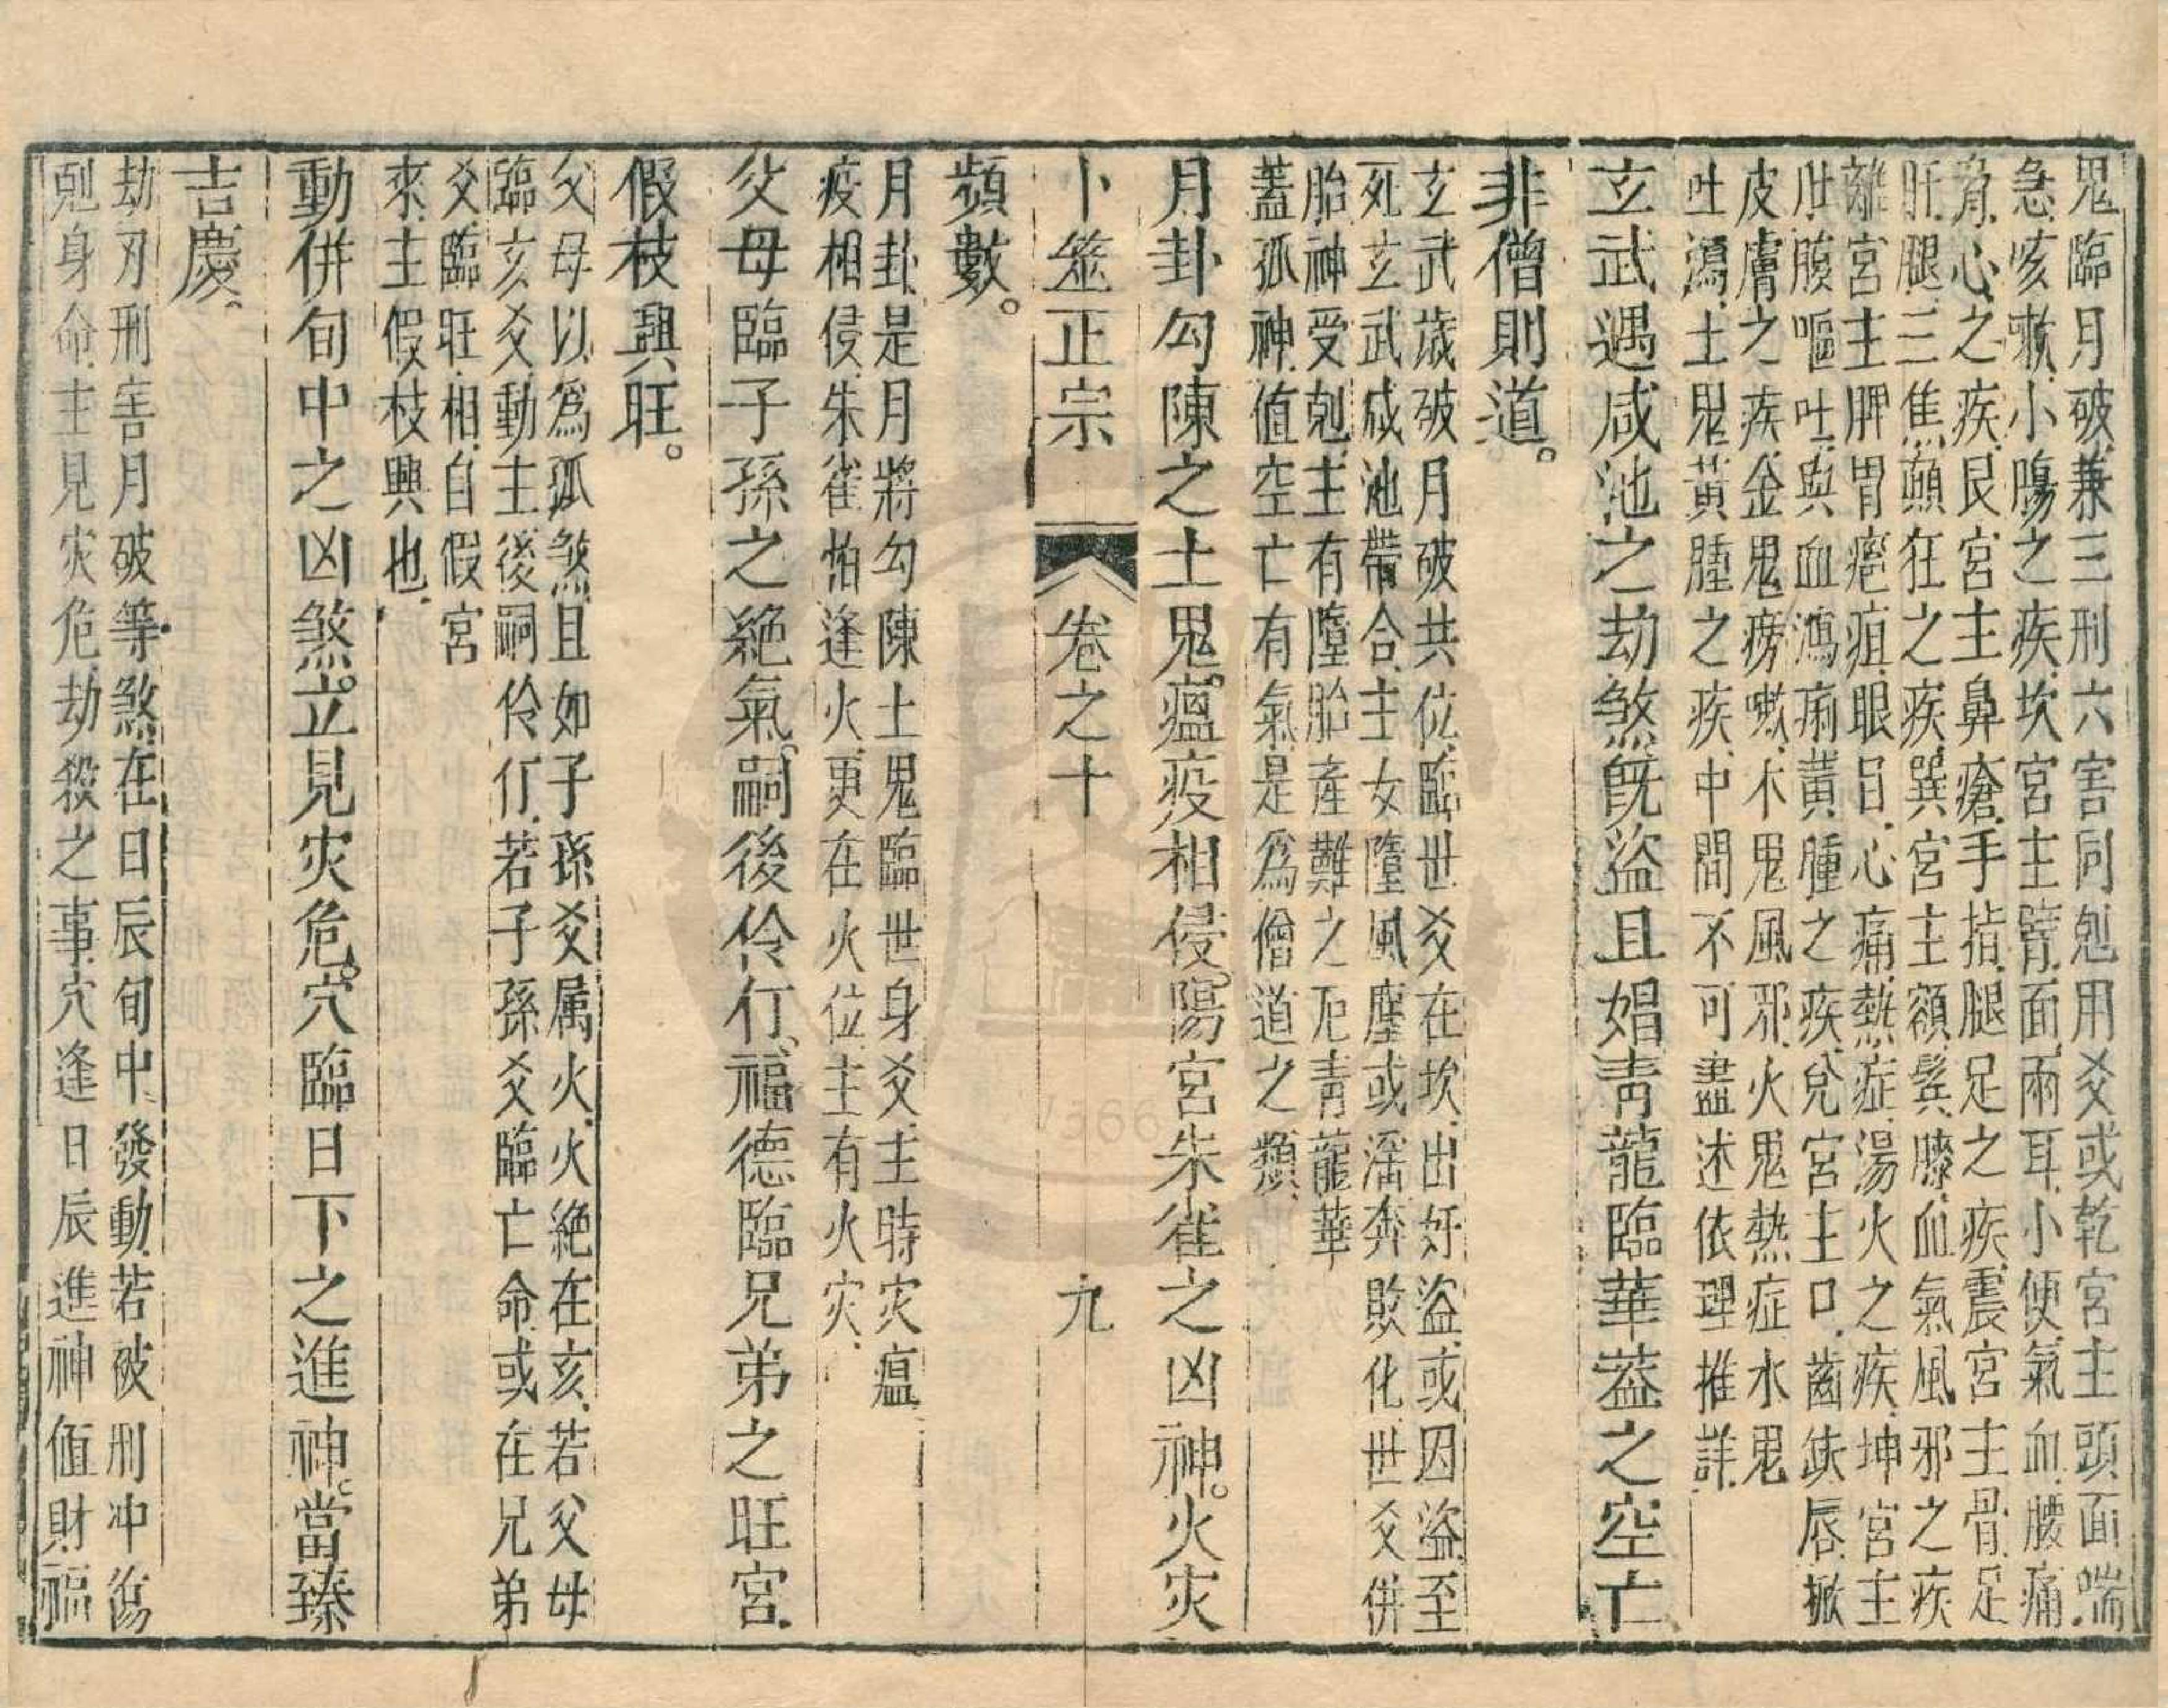 鬼臨月破兼三刑六害同剋用爻或乾宮主頭面喘
急咳嗽小膓之疾坎宮主腎面兩耳小便氣血腰痛
育心之疾艮宮主鼻瘡手指腿足之疾震宮主骨足
肝腿三焦顛狂之疾巽宮主額鬂膝血氣風邪之疾
離宮主脾胃瘡疽眼目心痛熱症湯火之疾坤宮主
肚腹嘔吐與血瀉痢黃腫之疾兌宮主口齒缺唇掀
皮膚之疾金鬼癆嗽木鬼風邪火鬼熱症水鬼
吐瀉土鬼黃腫之疾中間不可盡述依理推詳
玄武遇咸池之劫煞旣盜且娼青龍臨華葢之空亡
非僧則道。
玄武歲破月破共位臨世爻在坎出奸盜或因盜至
死玄武咸池帶合主女墮風塵或滛奔敗化世爻併
胎神受剋主有墮胎產難之厄青龍華
蓋孤神值空亡有氣是爲僧道之類
月卦勾陳之土鬼。瘟疫相侵。陽宮朱雀之凶神。火灾
卜筮正宗 卷之十 九
頻數。
月卦是月將勾陳土鬼臨世身爻主時灾瘟
疫相侵朱雀怕逢火更在火位主有火灾
父母臨子孫之絶氣。嗣後伶仃、福德臨兄弟之旺宮
假枝興旺。
父母以爲孤煞且如子孫爻属火火絶在亥若父母
臨亥爻動主後嗣伶仃若子孫爻臨亡命或在兄弟
爻臨旺相自假宮
來主假枝興也
動併旬中之凶煞。立見灾危。穴臨日下之進神。當臻
吉慶、
劫刃刑害月破等煞在日辰旬中發動若破刑冲傷
剋身命主見灾危劫殺之事穴逢日辰進神值財福